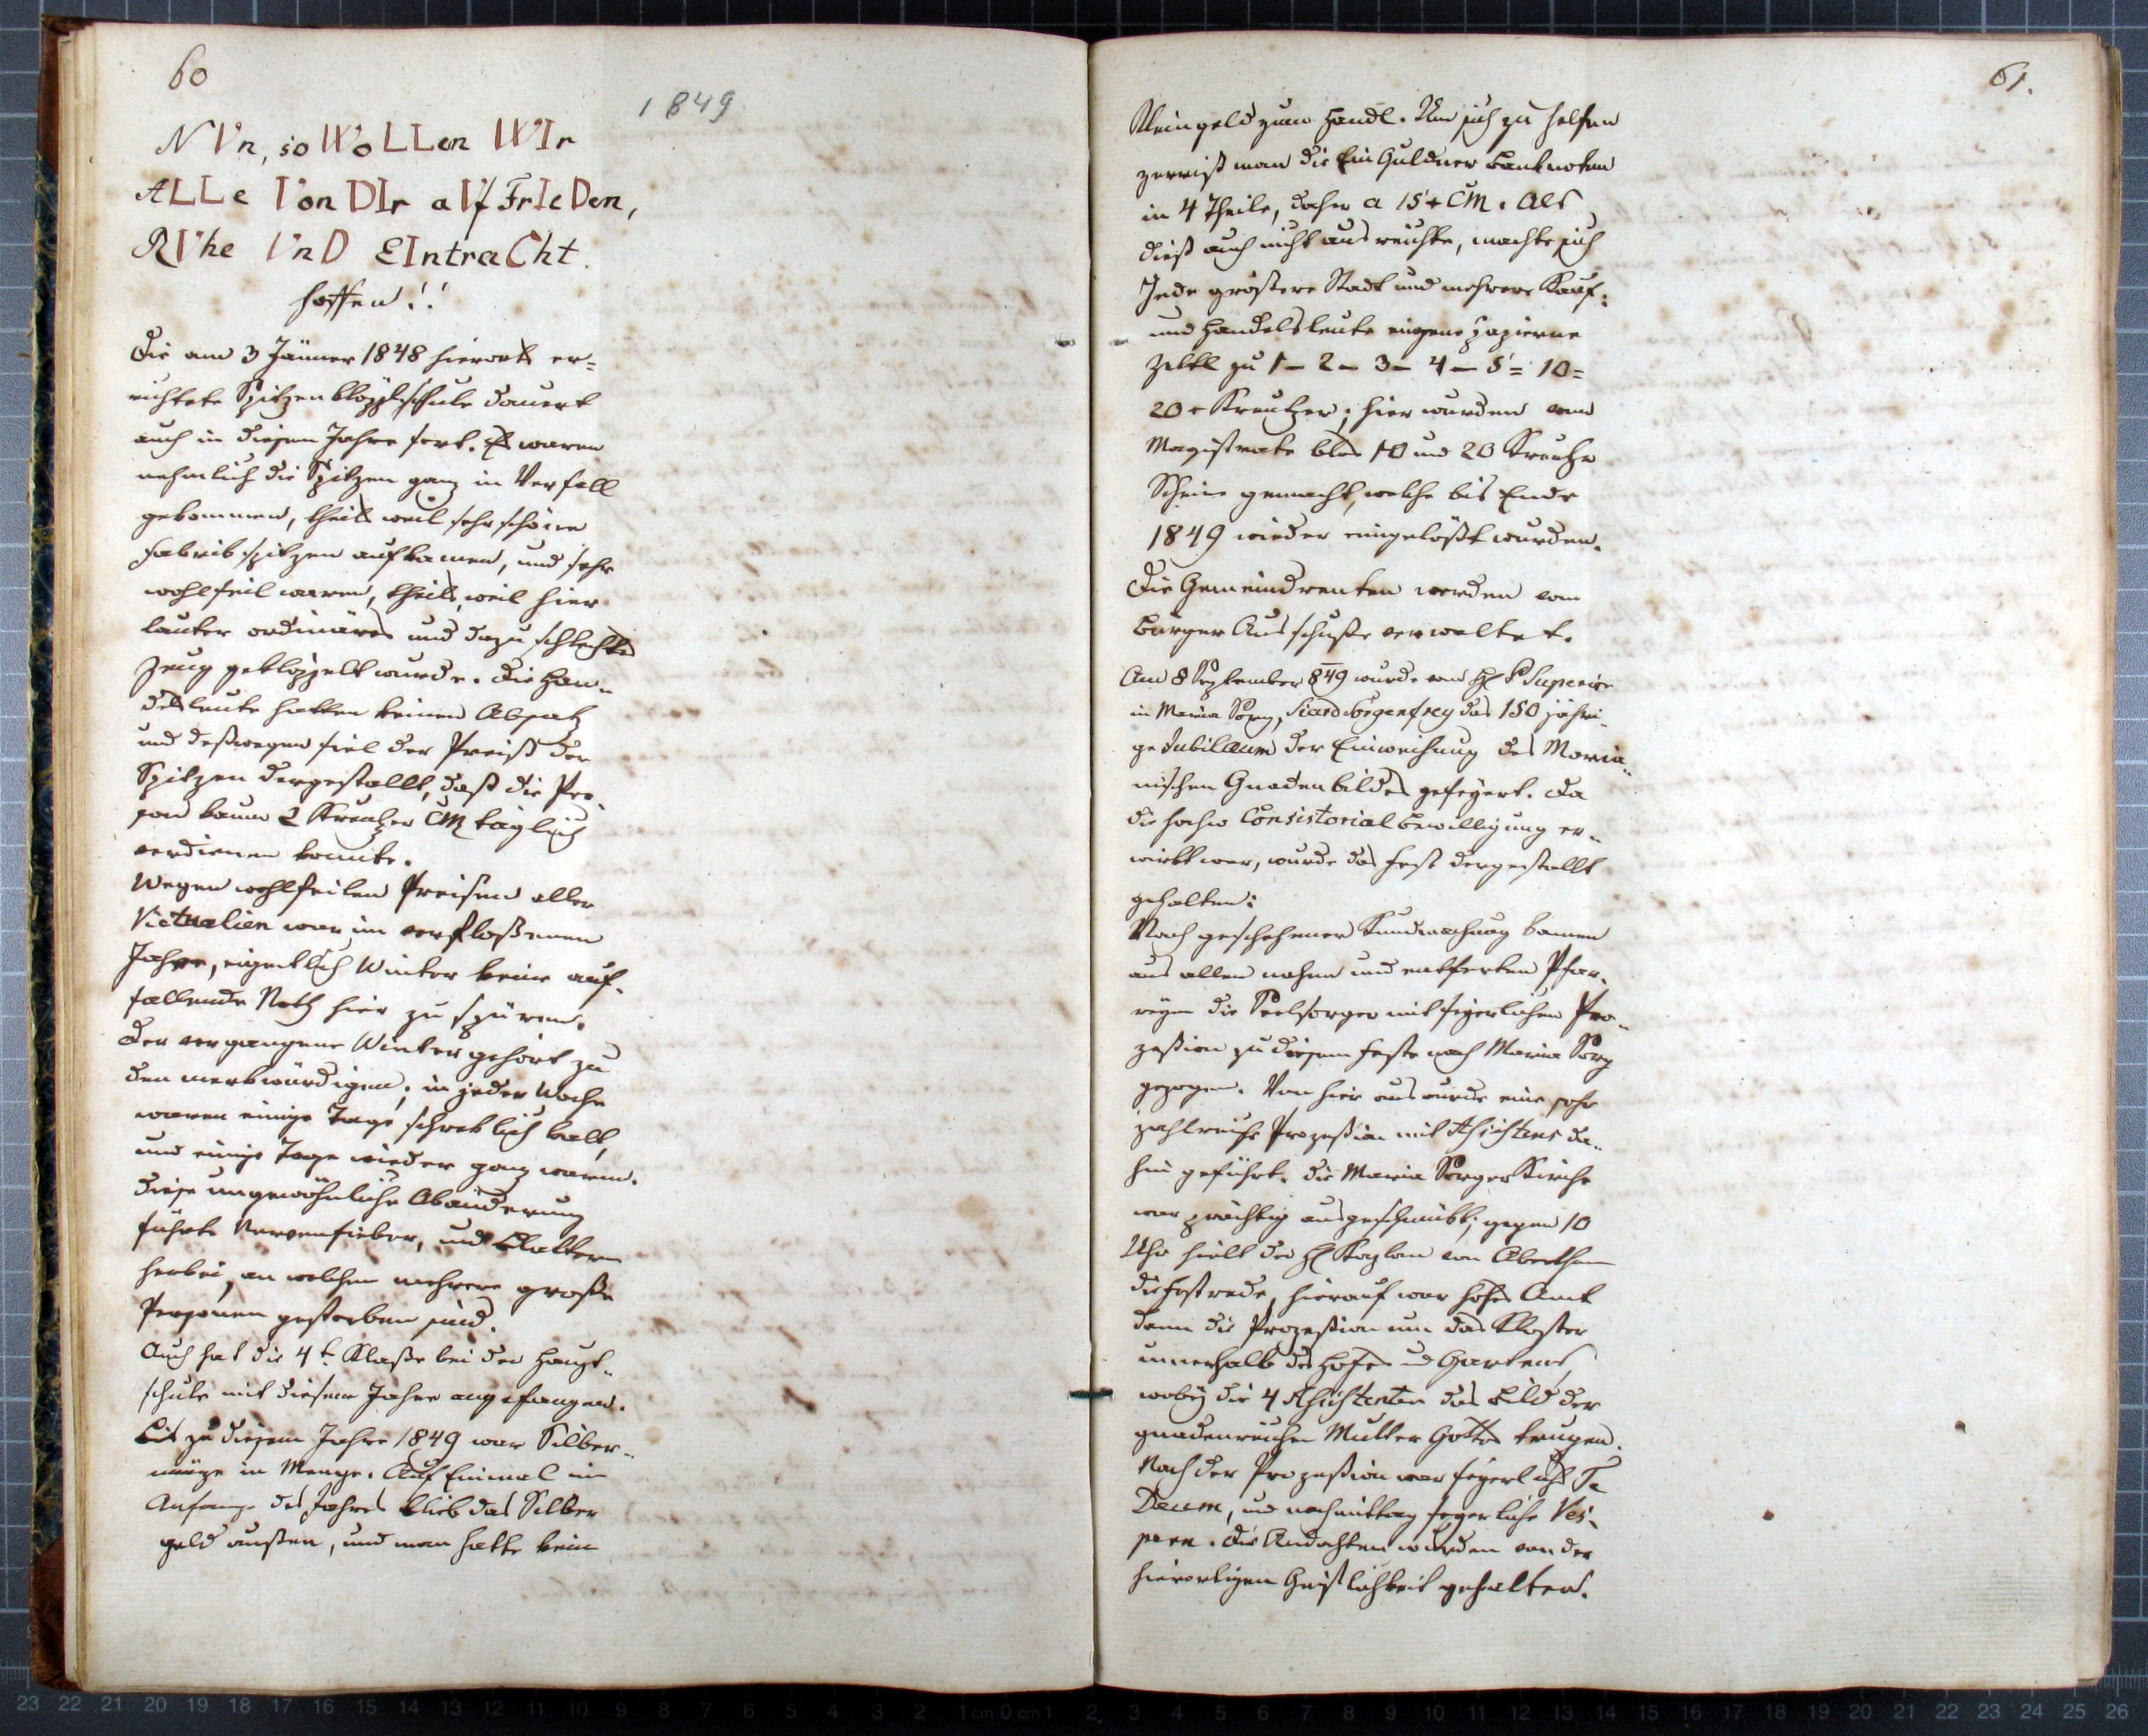 60
1849
NVn, so WoLLen WIr
ALLe Von DIr aVf FrIeDen,
RVhe VnD EIntraCht.
hoffen!!
Die am 3 Jänner 1848 hierorts er=
richtete Spitzenklöpplschule dauert
auch in diesem Jahre fort. Es waren
nehmlich die Spitzen ganz in Verfall
gekommen, theils weil sehr schöne
Fabrikspitzen aufkamen, und sehr
wohlfeil waren, theils, weil hier
lauter ordinäres und dazu schlechtes
Zeug geklöppelt wurde. Die Han-
delsleute hatten keinen Absatz
und deßwegen fiel der Preiß der
Spitzen dergestallt, daß die Per-
son kaum 2 Kreutzer CM täglich
verdienen konnte.
Wegen wohlfeilen Preisen aller
Victualien war im verfloßenen
Jahre, eigentlich Winter keine auf-
fallende Noth hier zu spüren.
Der vergangene Winter gehört zu
den merkwürdigen; in jeder Woche
waren einige Tage schreklich kalt,
und einige Tage wieder ganz warm.
Diese ungewöhnliche Abänderung
führte Nervenfieber, und Blattern
herbei, an welchen mehrere große
Personen gestorben sind.
Auch hat die 4t. Klaße bei der Haupt-
schule mit diesem Jahre angefangen.
Bis zu diesem Jahre 1849 war Silber-
münze in Menge. Auf Einmal im
Anfange des Jahres blieb das Silber
geld außen, und man hatte kein
61.
Kleingeld zum Handl. Um sich zu helfen
zerriß man die Ein Guldner Banknoten
in 4 Theile, daher a 15 x CM. Als
dieß auch nicht ausreichte, machte sich
Jede größere Stadt und mehrere Kauf:
und Handelsleute eigene papierne
Zettl zu 1 - 2 - 3 - 4 - 5 = 10 =
20 x Kreutzer; hier wurden vom
Magistrate blos 10 und 20 Kreutzer
Scheine gemacht, welche bis Ende
1849 wieder eingelößt wurden.
Die Gemeindrenten werden vom
Bürger Ausschuße verwaltet.
Am 8 September 849 wurde vom H P Superior
in Maria Sorg, Siard Sorgenfrey das 150 jähri-
ge Jubilaeum der Einweihung des Maria-
nischen Gnadenbildes gefeyert. Da
die hohe Consistorial Bewilligung er-
wirkt war, wurde das Fest dergestallt
gehalten:
Nach geschehener Kundmachung kamen
aus allen nahen und entferten Pfar-
reyen die Seelsorger mit feyerlichen Pro-
zeßion zu diesem Feste nach Maria Sorg
gezogen. Von hier aus wurde eine sehr
zahlreiche Prozeßion mit Assistenz da-
hin geführt. Die Maria Sorger Kirche
war prächtig ausgeschmükt; gegen 10
Uhr hielt der H Kaplan von Abertham
die Festrede, hierauf war hohes Amt
dann die Prozeßion um das Kloster
innerhalb des Hofes und Gartens
wobey die 4 Assistenten das Bild der
gnadenreichen Mutter Gottes trugen.
Nach der Prozeßion war feyerliches Te
Deum, und nachmittag feyerliche Ves-
pern. Die Andachten wurden von der
hierortigen Geistlichkeit gehalten.
23 22 21 20 19 18 17 16 15 14 13 12 11 10 9 8 7 6 5 4 3 2 1 cm 0 cm 1 2 3 4 5 6 7 8 9 10 11 12 13 14 15 16 17 18 19 20 21 22 23 24 25 26